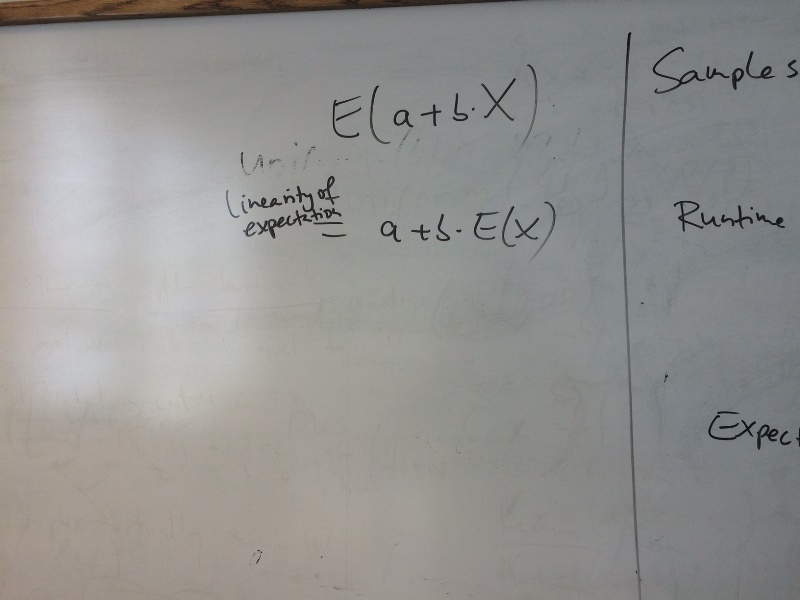 E(a+b·X)
Linearity of
expectation
= a+b·E(X)
Sample s
Runtime
Expect